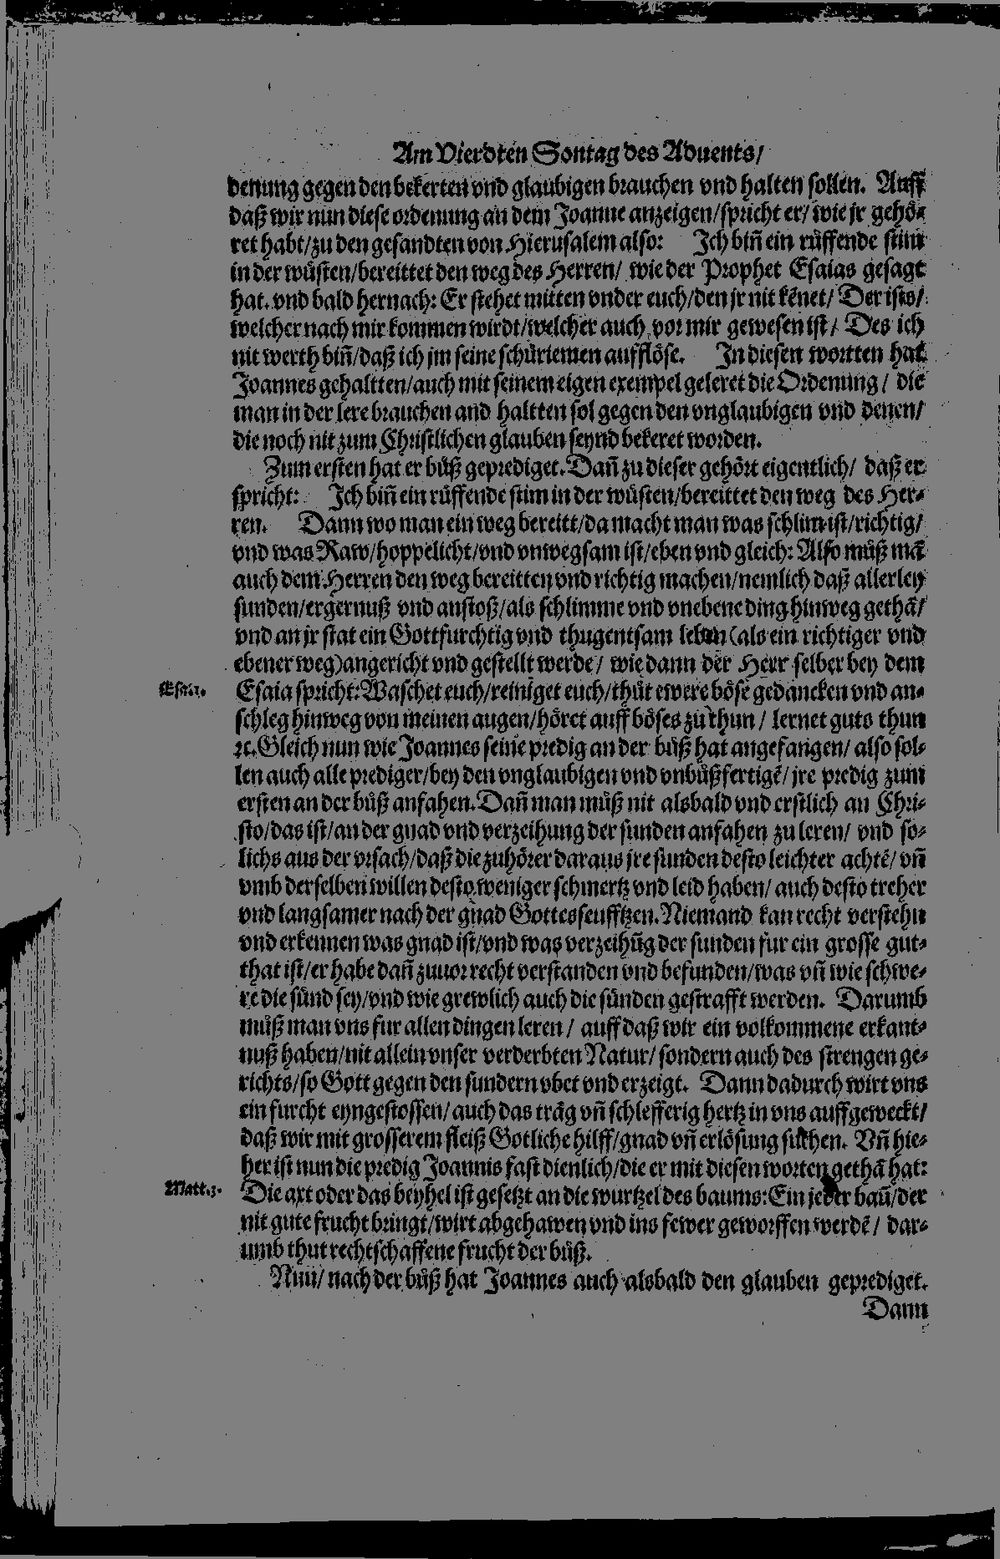 Am Vierdten Sontag des Aduents/
denung gegen den bekerten vnd glaubigen brauchen vnd halten sollen. Auff
daß wir nun diese ordenung an dem Joanne anzeigen/spricht er/ wie jr gehö⸗
ret habt/zu den gesandten von Hierusalem also: Ich biñ ein rüffende stim
in der wüsten/bereittet den weg des Herren/ wie der Prophet Esaias gesagt
hat. vnd bald hernach: Er stehet mitten vnder euch/den jr nit kēnet/ Der ists/
welcher nach mir kommen wirdt/welcher auch vor mir gewesen ist/ Des ich
nit werth biñ/daß ich jm seine schüriemen aufflöse. In diesen wortten hat
Joannes gehaltten/auch mit seinem eigen exempel geleret die Ordenung/ die
man in der lere brauchen and haltten sol gegen den vnglaubigen vnd denen/
die noch nit zum Christlichen glauben seynd bekeret worden.
Zum ersten hat er büß geprediget. Dañ zu dieser gehört eigentlich/ daß er
spricht: Ich biñ ein rüffende stim in der wüsten/bereittet den weg des Her⸗
ren. Dann wo man ein weg bereitt/da macht man was schlim ist/richtig/
vnd was Raw/hoppelicht/vnd vnwegsam ist/eben vnd gleich: Also müß mā
auch dem Herren den weg bereitten vnd richtig machen/nemlich daß allerley
sunden/ergernuß vnd anstoß/als schlimme vnd vnebene ding hinweg gethā/
vnd an jr stat ein Gottfurchtig vnd thugentsam leben (als ein richtiger vnd
ebener weg) angericht vnd gestellt werde/ wie dann der Herr selber bey dem
Esai.1.
Esaia spricht: Waschet euch/reiniget euch/thüt ewere böse gedancken vnd an⸗
schleg hinweg von meinen augen/höret auff böses zü thun/ lernet guts thun
ꝛc. Gleich nun wie Joannes seine predig an der büß hat angefangen/ also sol⸗
len auch alle prediger/bey den vnglaubigen vnd vnbüßfertigē/ jre predig zum
ersten an der büß anfahen. Dañ man müß nit alsbald vnd erstlich an Chri⸗
sto/das ist/an der gnad vnd verzeihung der sunden anfahen zu leren/ vnd so⸗
lichs aus der vrsach/daß die zuhörer daraus jre sunden desto leichter achtē/ vñ
vmb derselben willen desto weniger schmertz vnd leid haben/ auch desto treher
vnd langsamer nach der gnad Gottes seufftzen. Niemand kan recht verstehn
vnd erkennen was gnad ist/vnd was verzeihūg der sunden fur ein grosse gut⸗
that ist/er habe dañ zuuor recht verstanden vnd befunden/was vñ wie schwe⸗
re die sünd sey/vnd wie grewlich auch die sünden gestrafft werden. Darumb
müß man vns fur allen dingen leren/ auff daß wir ein volkommene erkant⸗
nuß haben/nit allein vnser verderbten Natur/ sondern auch des strengen ge⸗
richts/so Gott gegen den sundern vbet vnd erzeigt. Dann dadurch wirt vns
ein furcht eyngestossen/ auch das träg vñ schlefferig hertz in vns auffgeweckt/
daß wir mit grosserem fleiß Gotliche hilff/gnad vñ erlösung süchen. Vñ hie⸗
her ist nun die predig Joannis fast dienlich/die er mit diesen worten gethā hat:
Matt.3.
Die axt oder das beyhel ist gesetzt an die wurtzel des baums: Ein jeder baū/der
nit gute frucht bringt/wirt abgehawen vnd ins fewer geworffen werdē/ dar⸗
umb thut rechtschaffene frucht der büß.
Nun/ nach der büß hat Joannes auch alsbald den glauben geprediget.
Dann